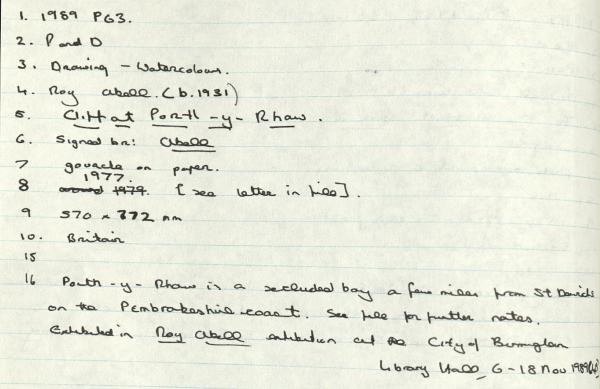 1. 1989 P63.
2. P and D
3. Drawing - Watercolours.
4. Roy Abell. (b. 1931)
5. Cliff at Porth-y-Rhaw.
6. Signed br: Abell
7 gouache on paper.
1977.
8 around 1979. [see letter in file].
9 570 x 772 mm
10. Britain
15
16 Porth-y-Rhaw is a secluded bay a few miles from St Davids
on the Pembrokeshire coast. See file for further notes.
Exhibited in Roy Abell exhibition at the City of Birmingham
Library Hall, 6-18 Nov 1989